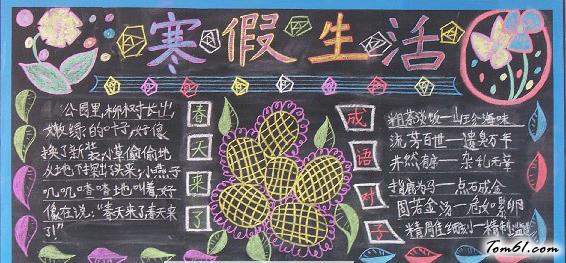 寒假生活
公园里,柳树长出
嫩绿的叶子,好像
换了新装,小草偷偷地
从地下探出头来,小燕子
叽叽喳喳地叫着,好
像在说:“春天来了春天来
了!”
春天来了
成语对子
粗茶淡饭—山珍海味
流芳百世—遗臭万年
井然有序—杂乱无章
指鹿为马—点石成金
固若金汤—危如累卵
精雕细刻—粗制滥造
Tom61.com